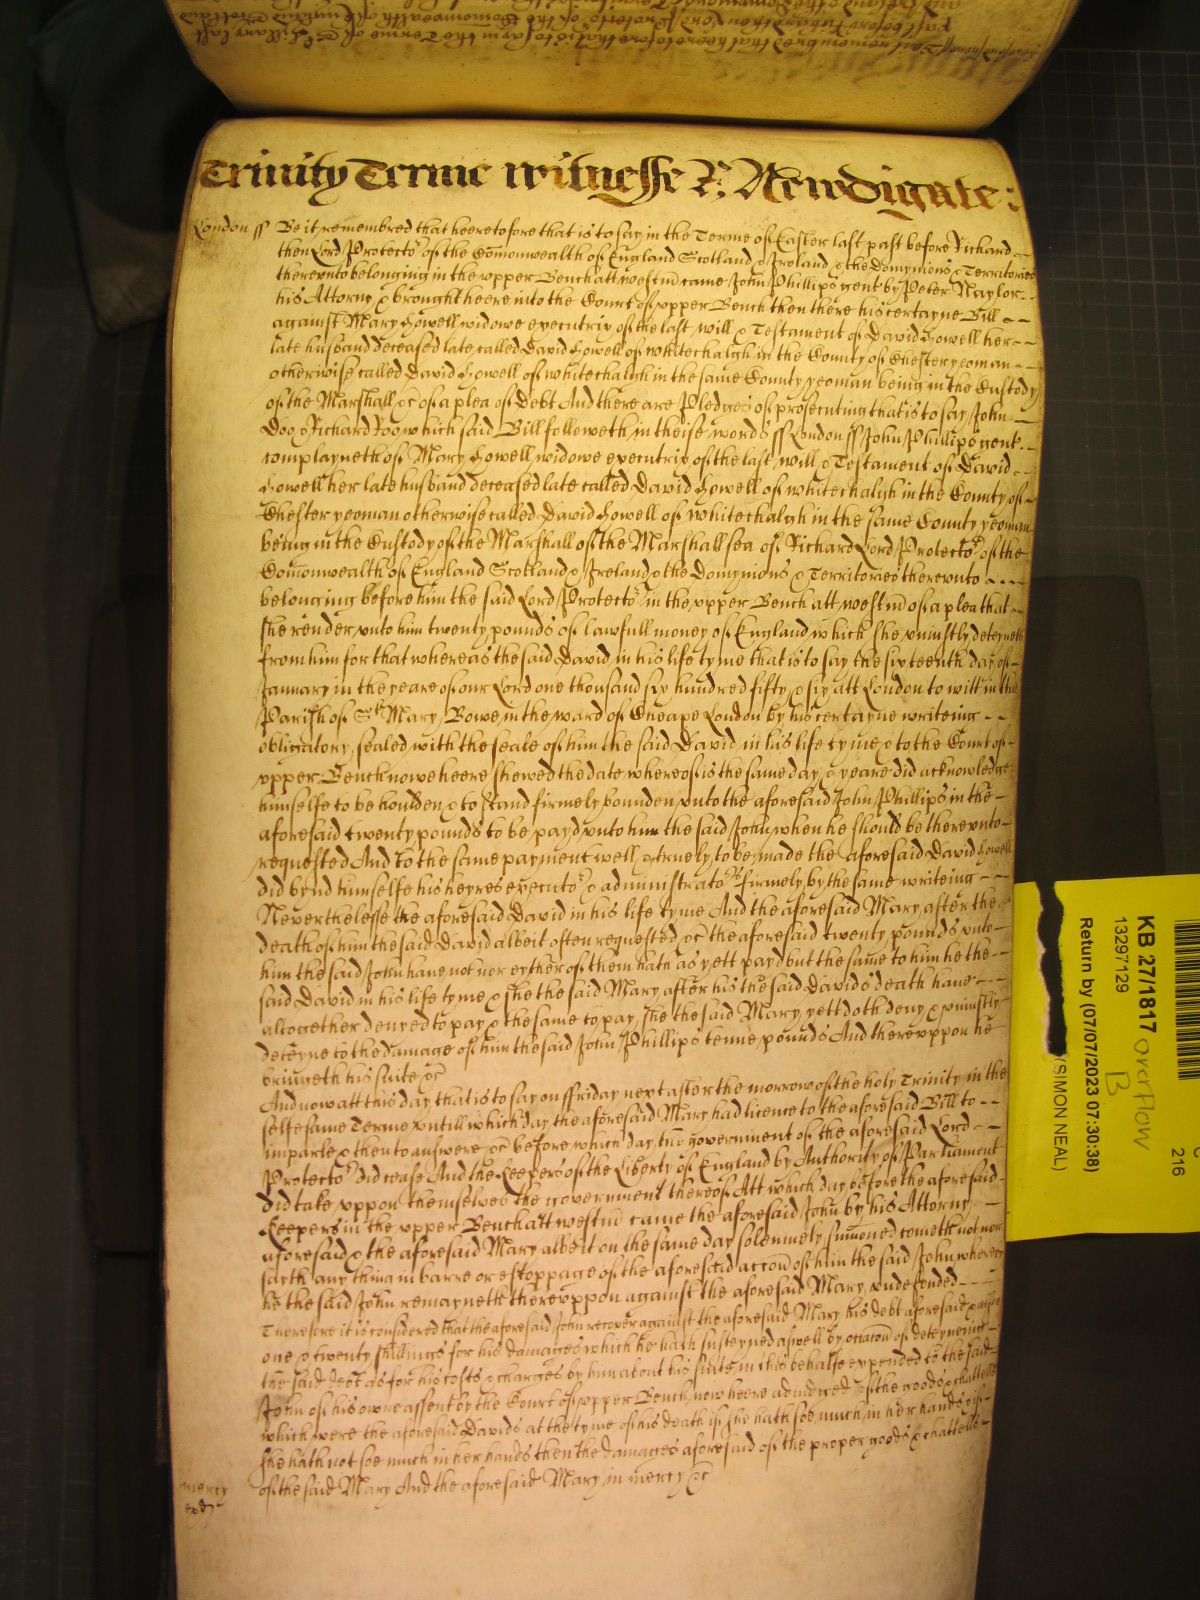 Trinity Terme witnesse R: Newdigate:
London ss Be it remembred that heeretofore that is to say in the Terme of Easter last past before Richard
then Lord Protector of the Comonwealth of England Scotland & Ireland & the Dominions & Territories
thereunto belonging in the upper Bench att westm came John Phillips gent by Peter Naylor
his Attorny & brought heere into the Court of upper Bench then there his certayne Bill
against Mary Howell widowe executrix of the last will & Testament of David Howell her
late husband deceased late called David Howell of whitechalgh in the County of Chester yeoman
otherwise called David Howell of whitechalgh in the same County yeoman being in the Custody
of the Marshall &c of a plea of Debt And there are Pledges of prosecuting that is to say John
Doo & Richard Roo which said Bill followeth in theise words ss London ss John Phillips gent
complayneth of Mary Howell widowe executrix of the last will & Testament of David
Howell her late husband deceased late called David Howell of whitechalgh in the County of
Chester yeoman otherwise called David Howell of whitechalgh in the same County yeoman
being in the Custody of the Marshall of the Marshallsea of Richard Lord Protector of the
Comonwealth of England Scotland & Ireland & the Dominions & Territories thereunto
belonging before him the said Lord Protector in the upper Bench att westm of a plea that
she render unto him twenty pounds of lawfull money of England which she uniustly deteyneth
from him for that whereas the said David in his life tyme that is to say the sixteenth day of
January in the yeare of our Lord one thousand six hundred fifty & six att London to witt in the
Parish of St Mary Bowe in the ward of Cheape London by his certayne writeing
obligatory sealed with the seale of him the said David in his life tyme & to the Court of
upper Bench nowe heere shewed the date whereof is the same day & yeare did acknowledge
himselfe to be houlden & to stand firmely bounden unto the aforesaid John Phillips in the
aforesaid twenty pounds to be payd unto him the said John when he should be thereunto
requested And to the same payment well & truely to be made the aforesaid David Howell
did bynd himselfe his heyres executors & administrators firmely by the same writeing
Neverthelesse the aforesaid David in his life tyme And the aforesaid Mary after the
death of him the said David albeit often requested &c the aforesaid twenty pounds unto
him the said John have not nor eyther of them hath as yett payd but the same to him he the
said David in his life tyme & she the said Mary after his the said Davids death have
altogether denyed to pay & the same to pay she the said Mary yett doth deny & uniustly
deteyne to the damage of him the said John Phillips tenne pounds And thereuppon he
bringeth his suite &c
And now att this day that is to say on ffriday next after the morrow of the holy Trinity in the
selfesame Terme untill which day the aforesaid Mary had licence to the aforesaid Bill to
imparle & then to answere &c before which day the government of the aforesaid Lord
Protector did cease And the Keepers of the Liberty of England by Authority of Parliament
did take uppon themselves the government thereof Att which day before the aforesaid
Keepers in the upper Bench att westm came the aforesaid John by his Attorny
aforesaid & the aforesaid Mary albeit on the same day solemnely sumoned cometh not nor
saith any thing in barre or estoppage of the aforesaid accon of him the said John whereby
he the said John remayneth thereuppon against the aforesaid Mary undefended
Therefore it is considered that the aforesaid John recover against the aforesaid Mary his debt aforesaid & alsoe
one & twenty shillings for his damages which he hath susteyned aswell by occacon of deteyneing
the said debt as for his costs & charges by him about his suite in this behalfe expended to the said
John of his owne assent by the Court of upper Bench now heere adiudged of the goods & chattells
which were the aforesaid Davids at the tyme of his death if she hath soe much in her hands & if
she hath not soe much in her hands then the damages aforesaid of the proper goods & chattells
of the said Mary And the aforesaid Mary in mercy &c
mercy
KB 27/1817 overflow
B
13297129
Return by (07/07/2023 07:30:38)
(SIMON NEAL)
216